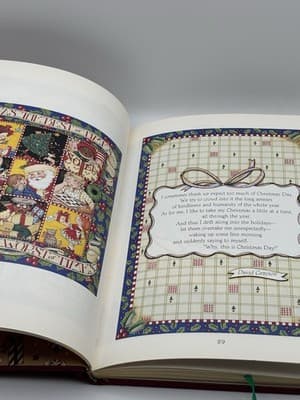 NOEL
I sometimes think we expect too much of Christmas Day.
We try to crowd into it the long arrears
of kindliness and humanity of the whole year.
As for me, I like to take my Christmas a little at a time,
all through the year.
And thus I drift along into the holidays—
let them overtake me unexpectedly—
waking up some fine morning
and suddenly saying to myself,
"Why, this is Christmas Day!"
David Grayson
89